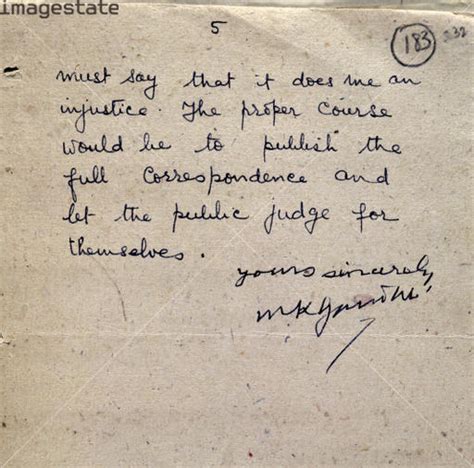 imagestate
5
183
232
must say that it does me an
injustice. The proper course
would be to publish the
full correspondence and
let the public judge for
themselves.
yours sincerely,
MKGandhi